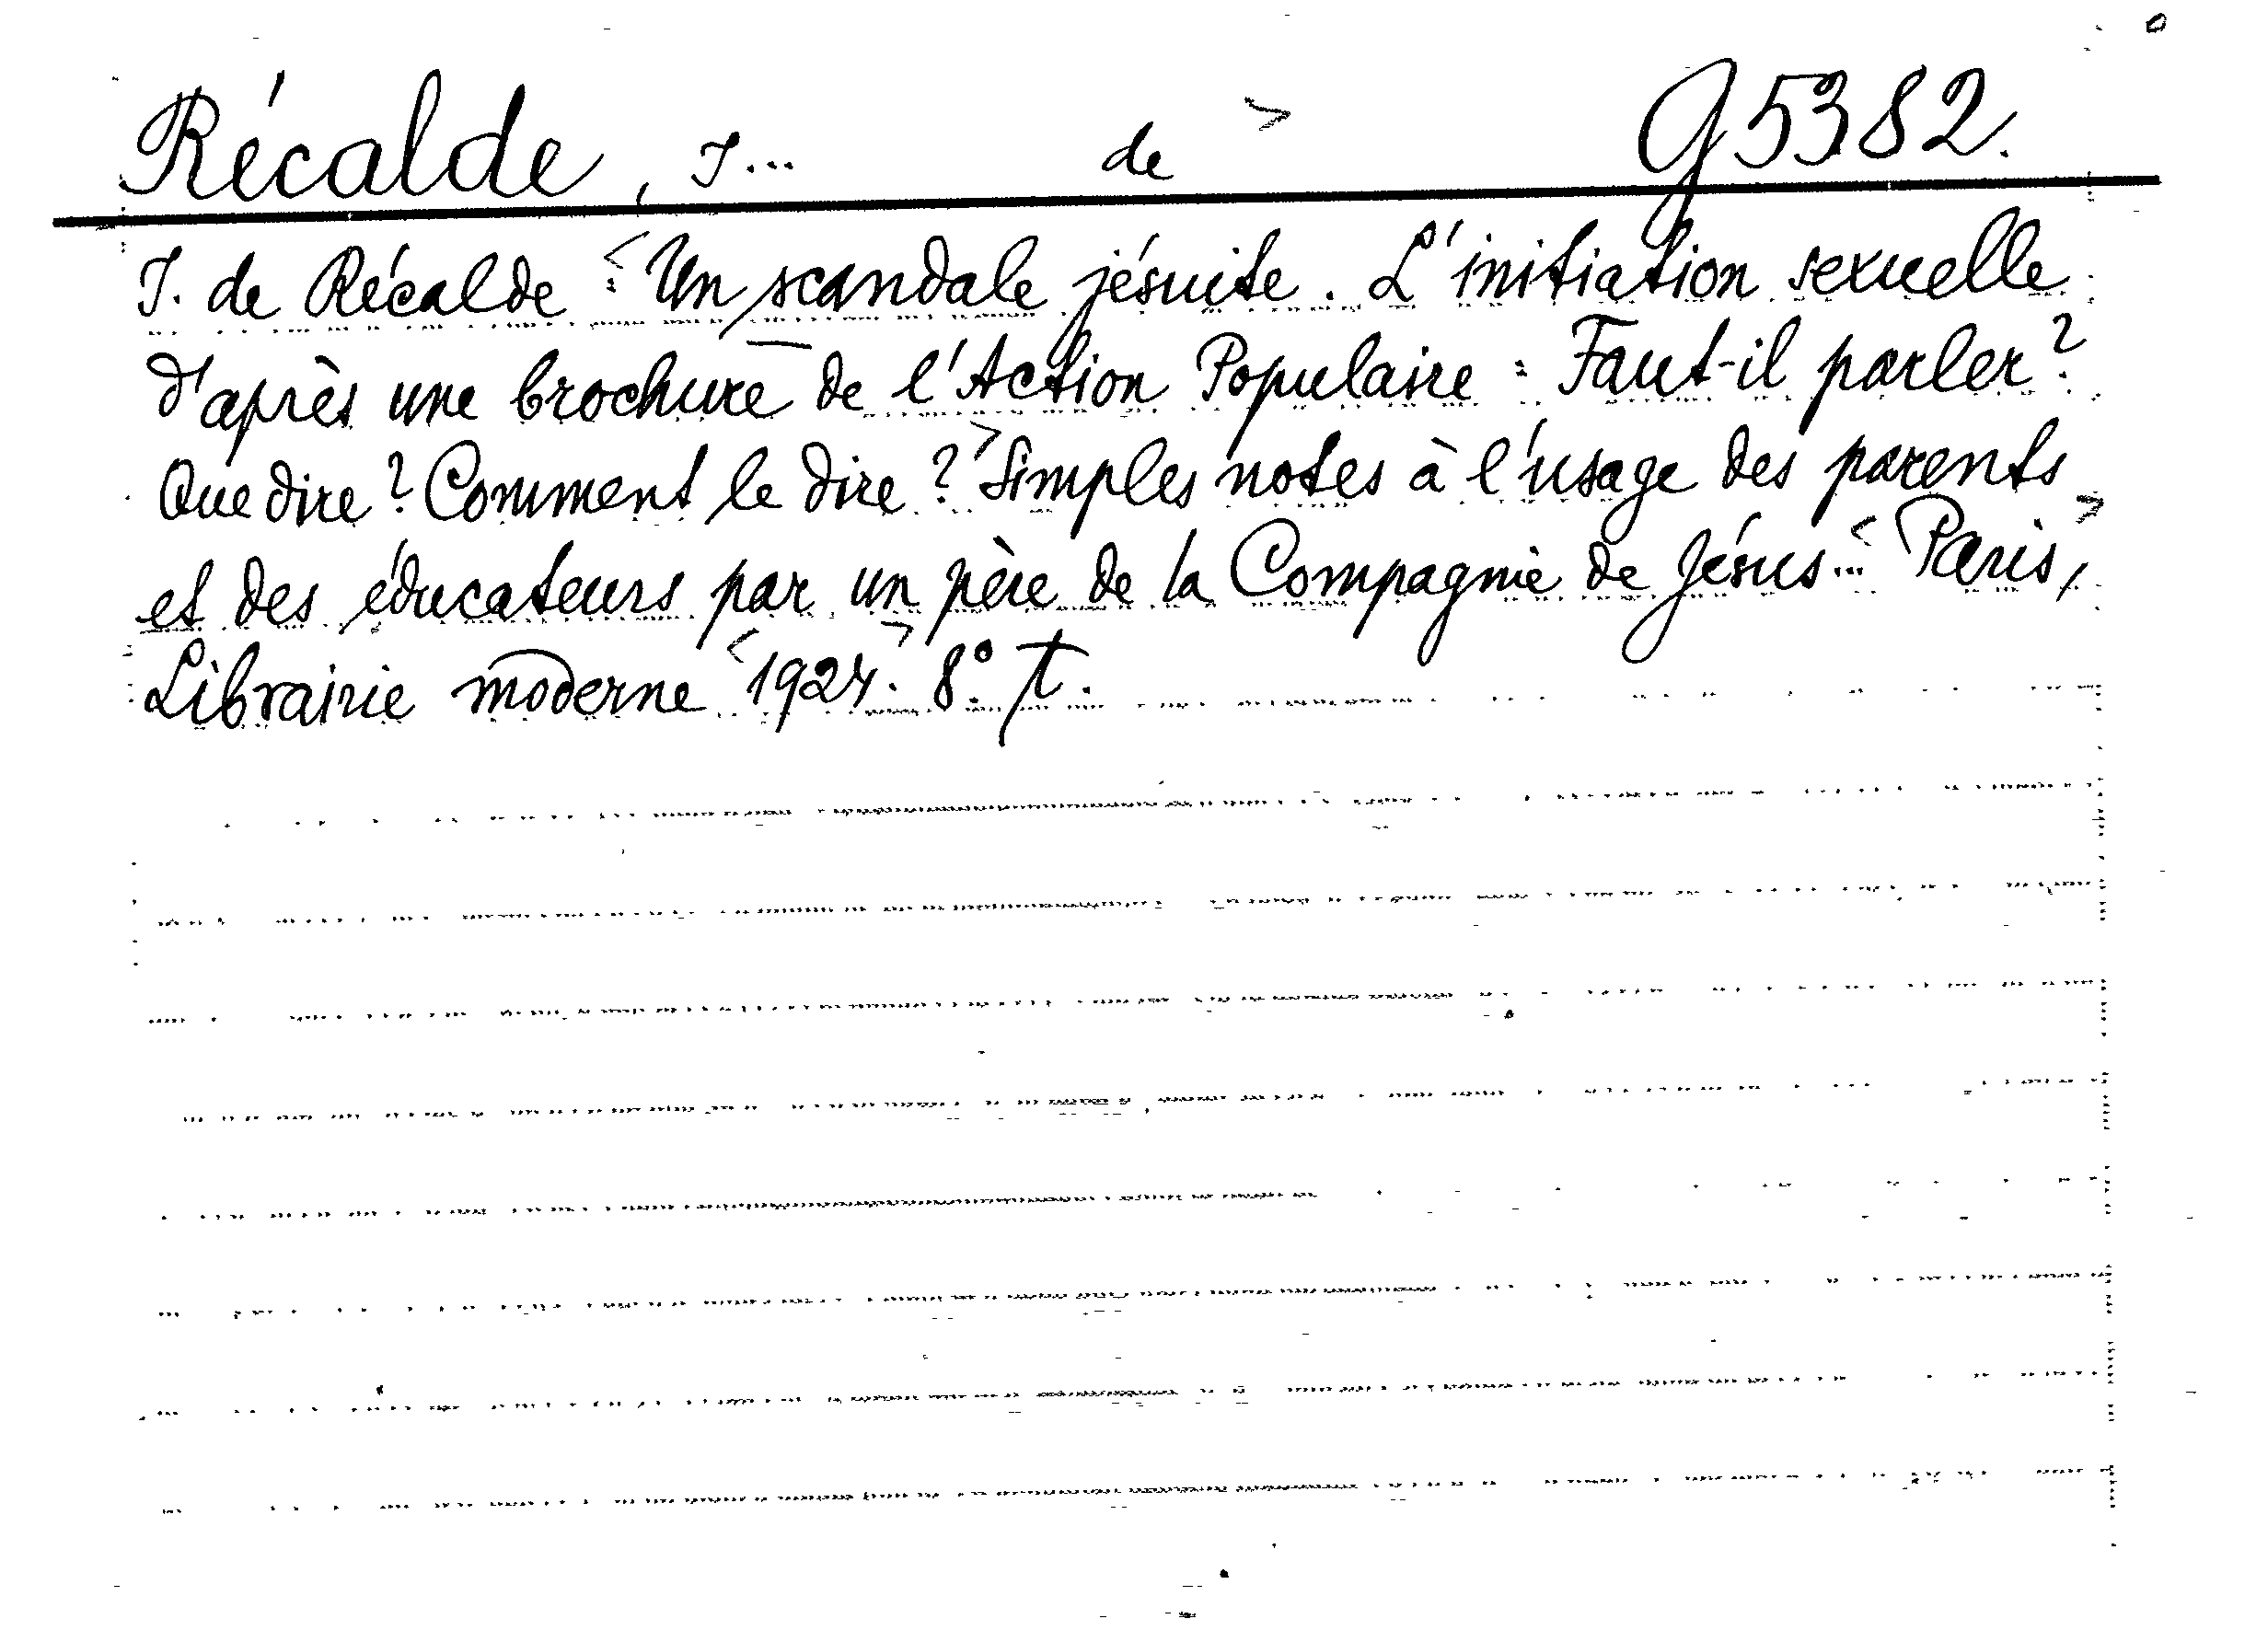 Récalde, I... de > G5382.
I. de Récalde <: Un scandale jésuite. L'initiation sexuelle
d'après une brochure de l'Action Populaire : Faut-il parler?
Que dire? Comment le dire?> Simples notes à l'usage des parents
et des éducateurs par un père de la Compagnie de Jésus...< Paris,>
Librairie moderne <1924.> 8°. T.